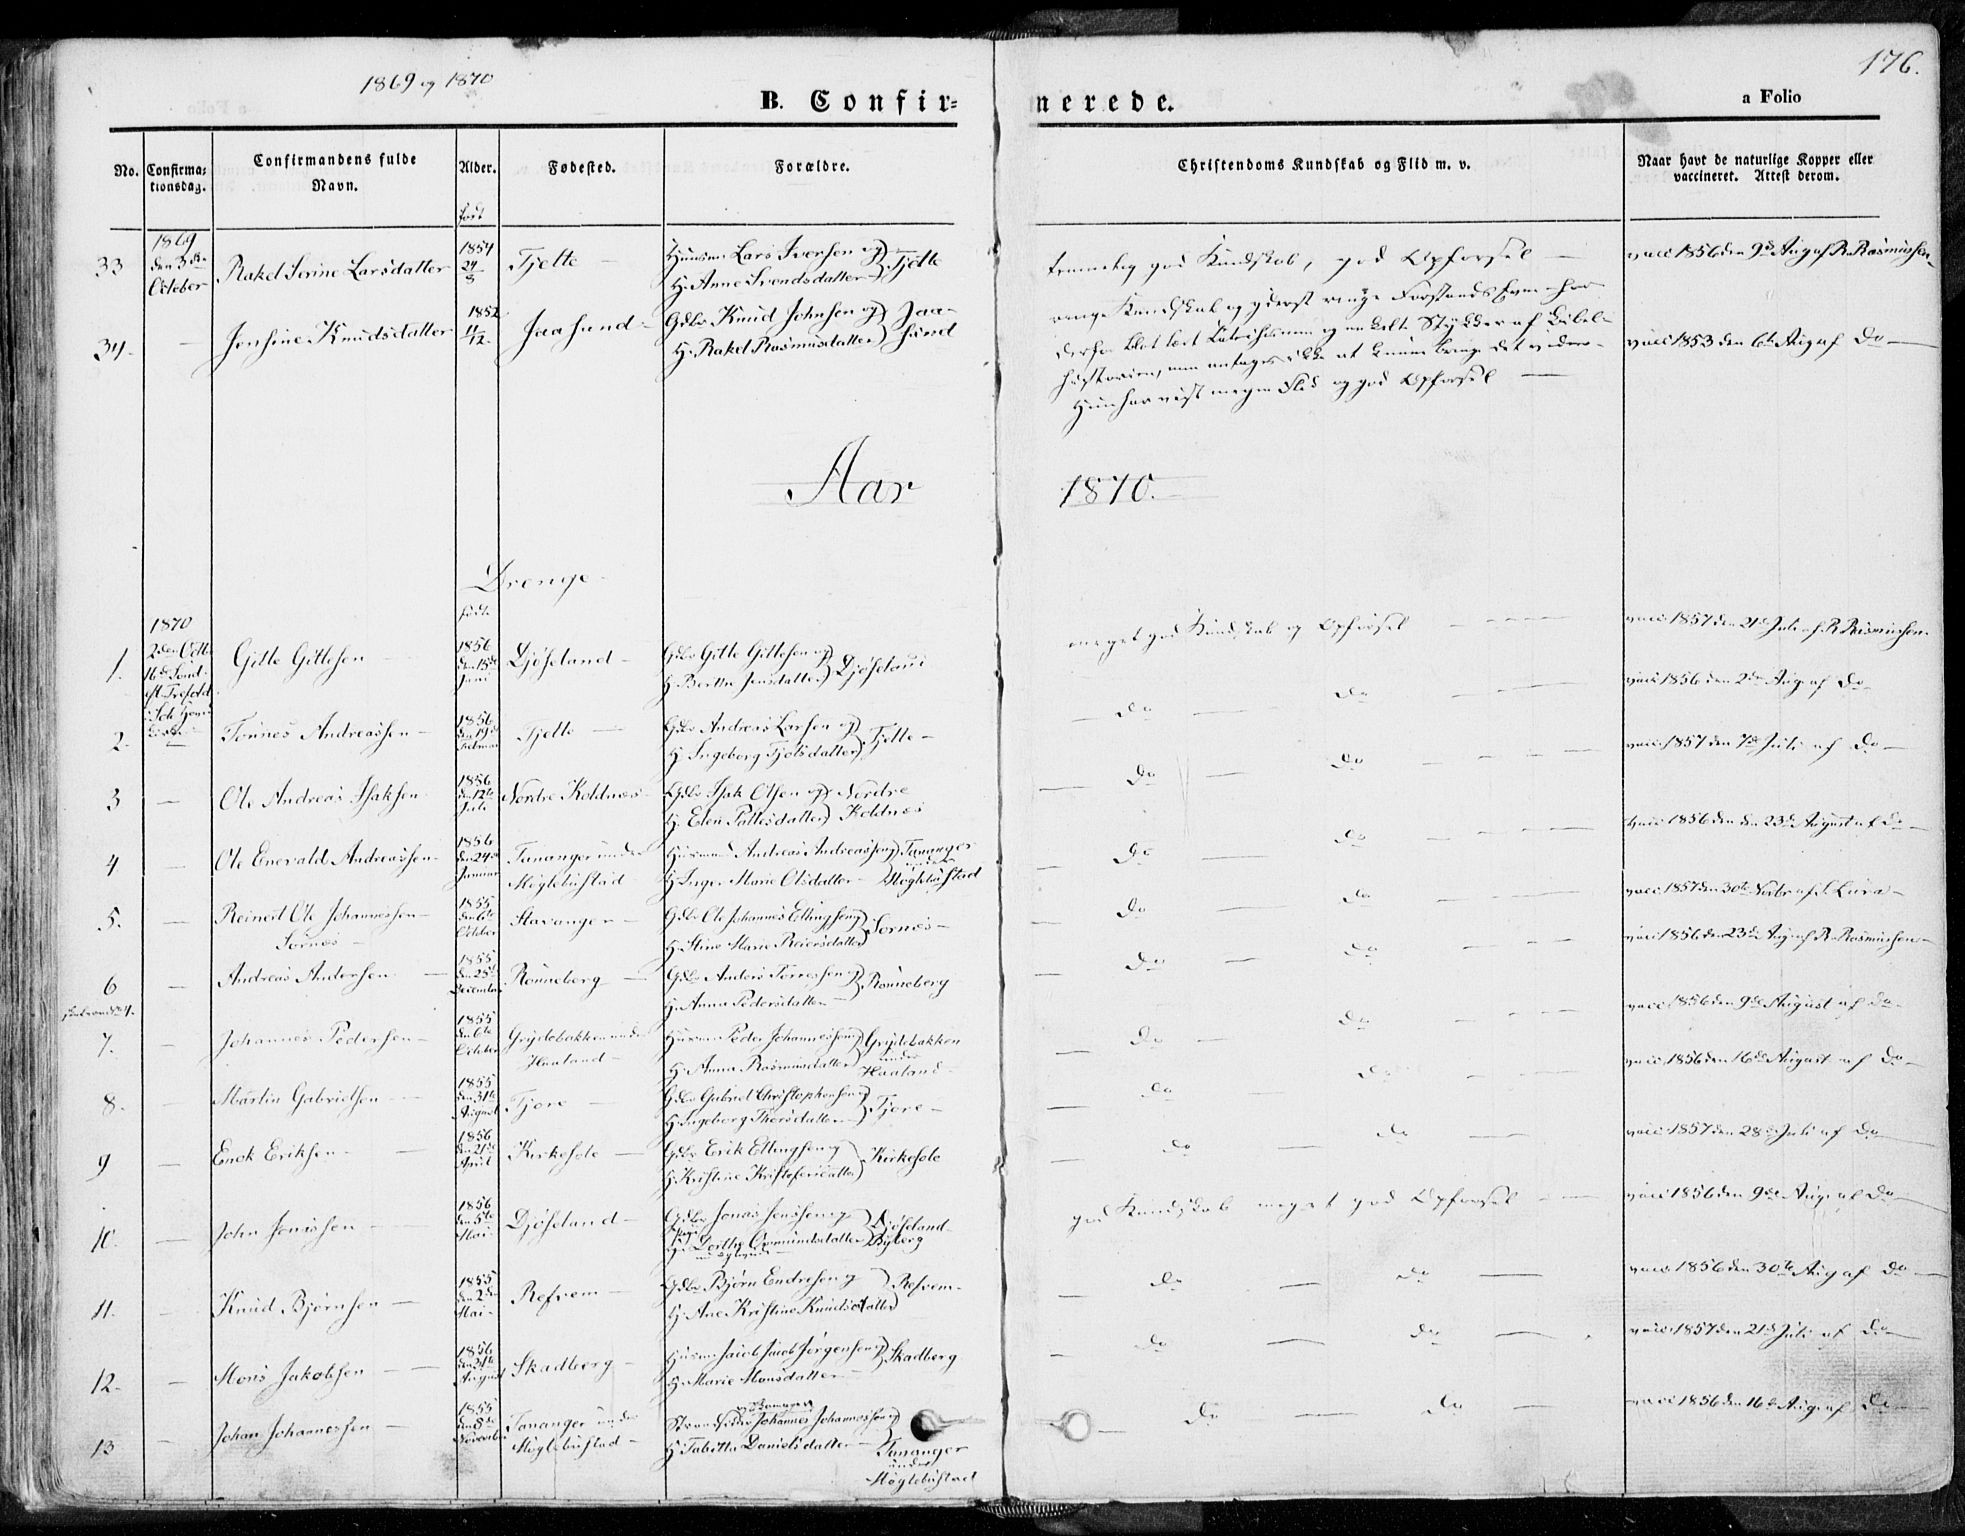 1869 og 1870
176.
B. Confir=
nerede.
a Folio
No.
Confirma=
tionsdag.
Confirmandens fulde
Navn.
Alder.
Fødested.
Forældre.
Christendoms Kundskab og Flid m. v.
Naar havt de naturlige Kopper eller
vaccineret. Attest derom.
født
33
1869
den 3die
October
Rakel Serine Larsdatter
1854
24
5
Tjelte
Huusm Lars Iversen og
H. Anne Svendsdatter
Tjelte
temmelig god Kundskab, god Opførsel
vacc 1856 den 9de Aug af R. Rasmussen
34.
Jonsine Knudsdatter
1852
11
12
Jaasund
Gdbr Knud Johnsen og
H. Rakel Rasmusdatter
Jaa-
sund
ringe Kundskab og yderst ringe Forstands Evne har
derfor blot læst Katechismen og enkelte Stykker af Bibel-
historien, men antages ikke at kunne bringe det videre
Hun har vist megen Flid og god Opførsel
vacc 1853 den 6te Aug af Do
Aar
1870.
Drenge
født
1.
1870
2den Octbr
16de Sønd.
eft. Trefold.
Gitle Gitlesen
1856
den 15de
Juni
Djøseland
Gdbr Gitle Gitlesen og
H. Berthe Jensdatter
Djøseland
meget god Kundskab og Opførsel
vacc 1857 den 21de Juli af R. Rasmussen.
2.
Tønnes Andreassen
1856
den 19de
Februar
Tjelte
Gdbr Andreas Larsen og
H. Ingeborg Tjølsdatter
Tjelte
Do
Do
vacc 1856 den 2den Aug af Do
3
Ole Andreas Isaksen
1856
den 12te
Juli
Nordre Koldnæs
Gdbr Isak Olsen og
H. Elen Pallesdatter
Nordre
Koldnæs
Do
Do
vacc 1857 den 7de Juli af Do
4
Ole Enevald Andreassen
1856
den 24de
Januar
Tananger under
Møglebustad
Huusmd Andreas Andreassen og
H. Inger Marie Olsdatter
Tananger
under
Møglebustad
Do
Do
vacc 1856 den den 23de August af Do
5.
Reinert Ole Johannessen
Sørnæs
1855
den 6te
October
Stavanger
Gdbr Ole Johannes Ellingsen og
H. Stine Marie Reiersdatter
Sørnæs
Do
Do
vacc 1857 den 30te Novbr af E Lura
6
Andreas Andersen
1855
den 25de
December
Rønneberg
Gdbr Anders Torressen og
H. Anna Pedersdatter
Rønneberg
Do
Do
vacc 1856 den 23de Aug af R. Rasmussen
7.
Johannes Pedersen
1855
den 6te
October
Grydebakken under
Haaland
Huusm Peder Johannessen og
H. Anna Rasmusdatter
Grydebakken
under
Haaland
Do
Do
vacc 1856 den 9de August af Do
8.
Martin Gabrielsen
1855
den 31te
August
Tjore
Gdbr Gabriel Christophersen og
H. Ingeborg Thorsdatter
Tjore
Do
Do
vacc 1856 den 16de August af Do
9
Enok Eriksen
1856
den 21de
April
Kirkesole
Gdbr Erik Ellingsen og
H. Kristine Kristofersdatter
Kirkesole
Do
Do
vacc 1857 den 28de Juli af Do
10.
John Jonassen
1856
den 5te
Mai
Djøseland
Gdbr Jonas Jensen og
H. Dorthe Ommundsdatter
Djøseland
Byberg
god Kundskab meget god Opførsel
vacc 1856 den 9de Aug af Do
11.
Knud Bjørnsen
1855
den 2den
Mai
Refvem
Gdbr Bjørn Endresen og
H. Ane Kristine Knudsdatter
Refvem
Do
Do
vacc 1856 den 30te Aug af Do
12.
Mons Jakobsen
1856
den 21de
August
Skadberg
Huusm Jacob Jacob Jørgensen og
H. Marie Monsdatter
Skadberg
Do
Do
vacc 1857 den 21de Juli af Do
13
Johan Johannessen
1855
den 8de
November
Tananger under
Møglebustad
Strandsidder Johannes Johannessen og
H. Tabitta Danielsdatter
Tananger
under
Møglebustad
Do
Do
vacc 1856 den 16de Aug af Do